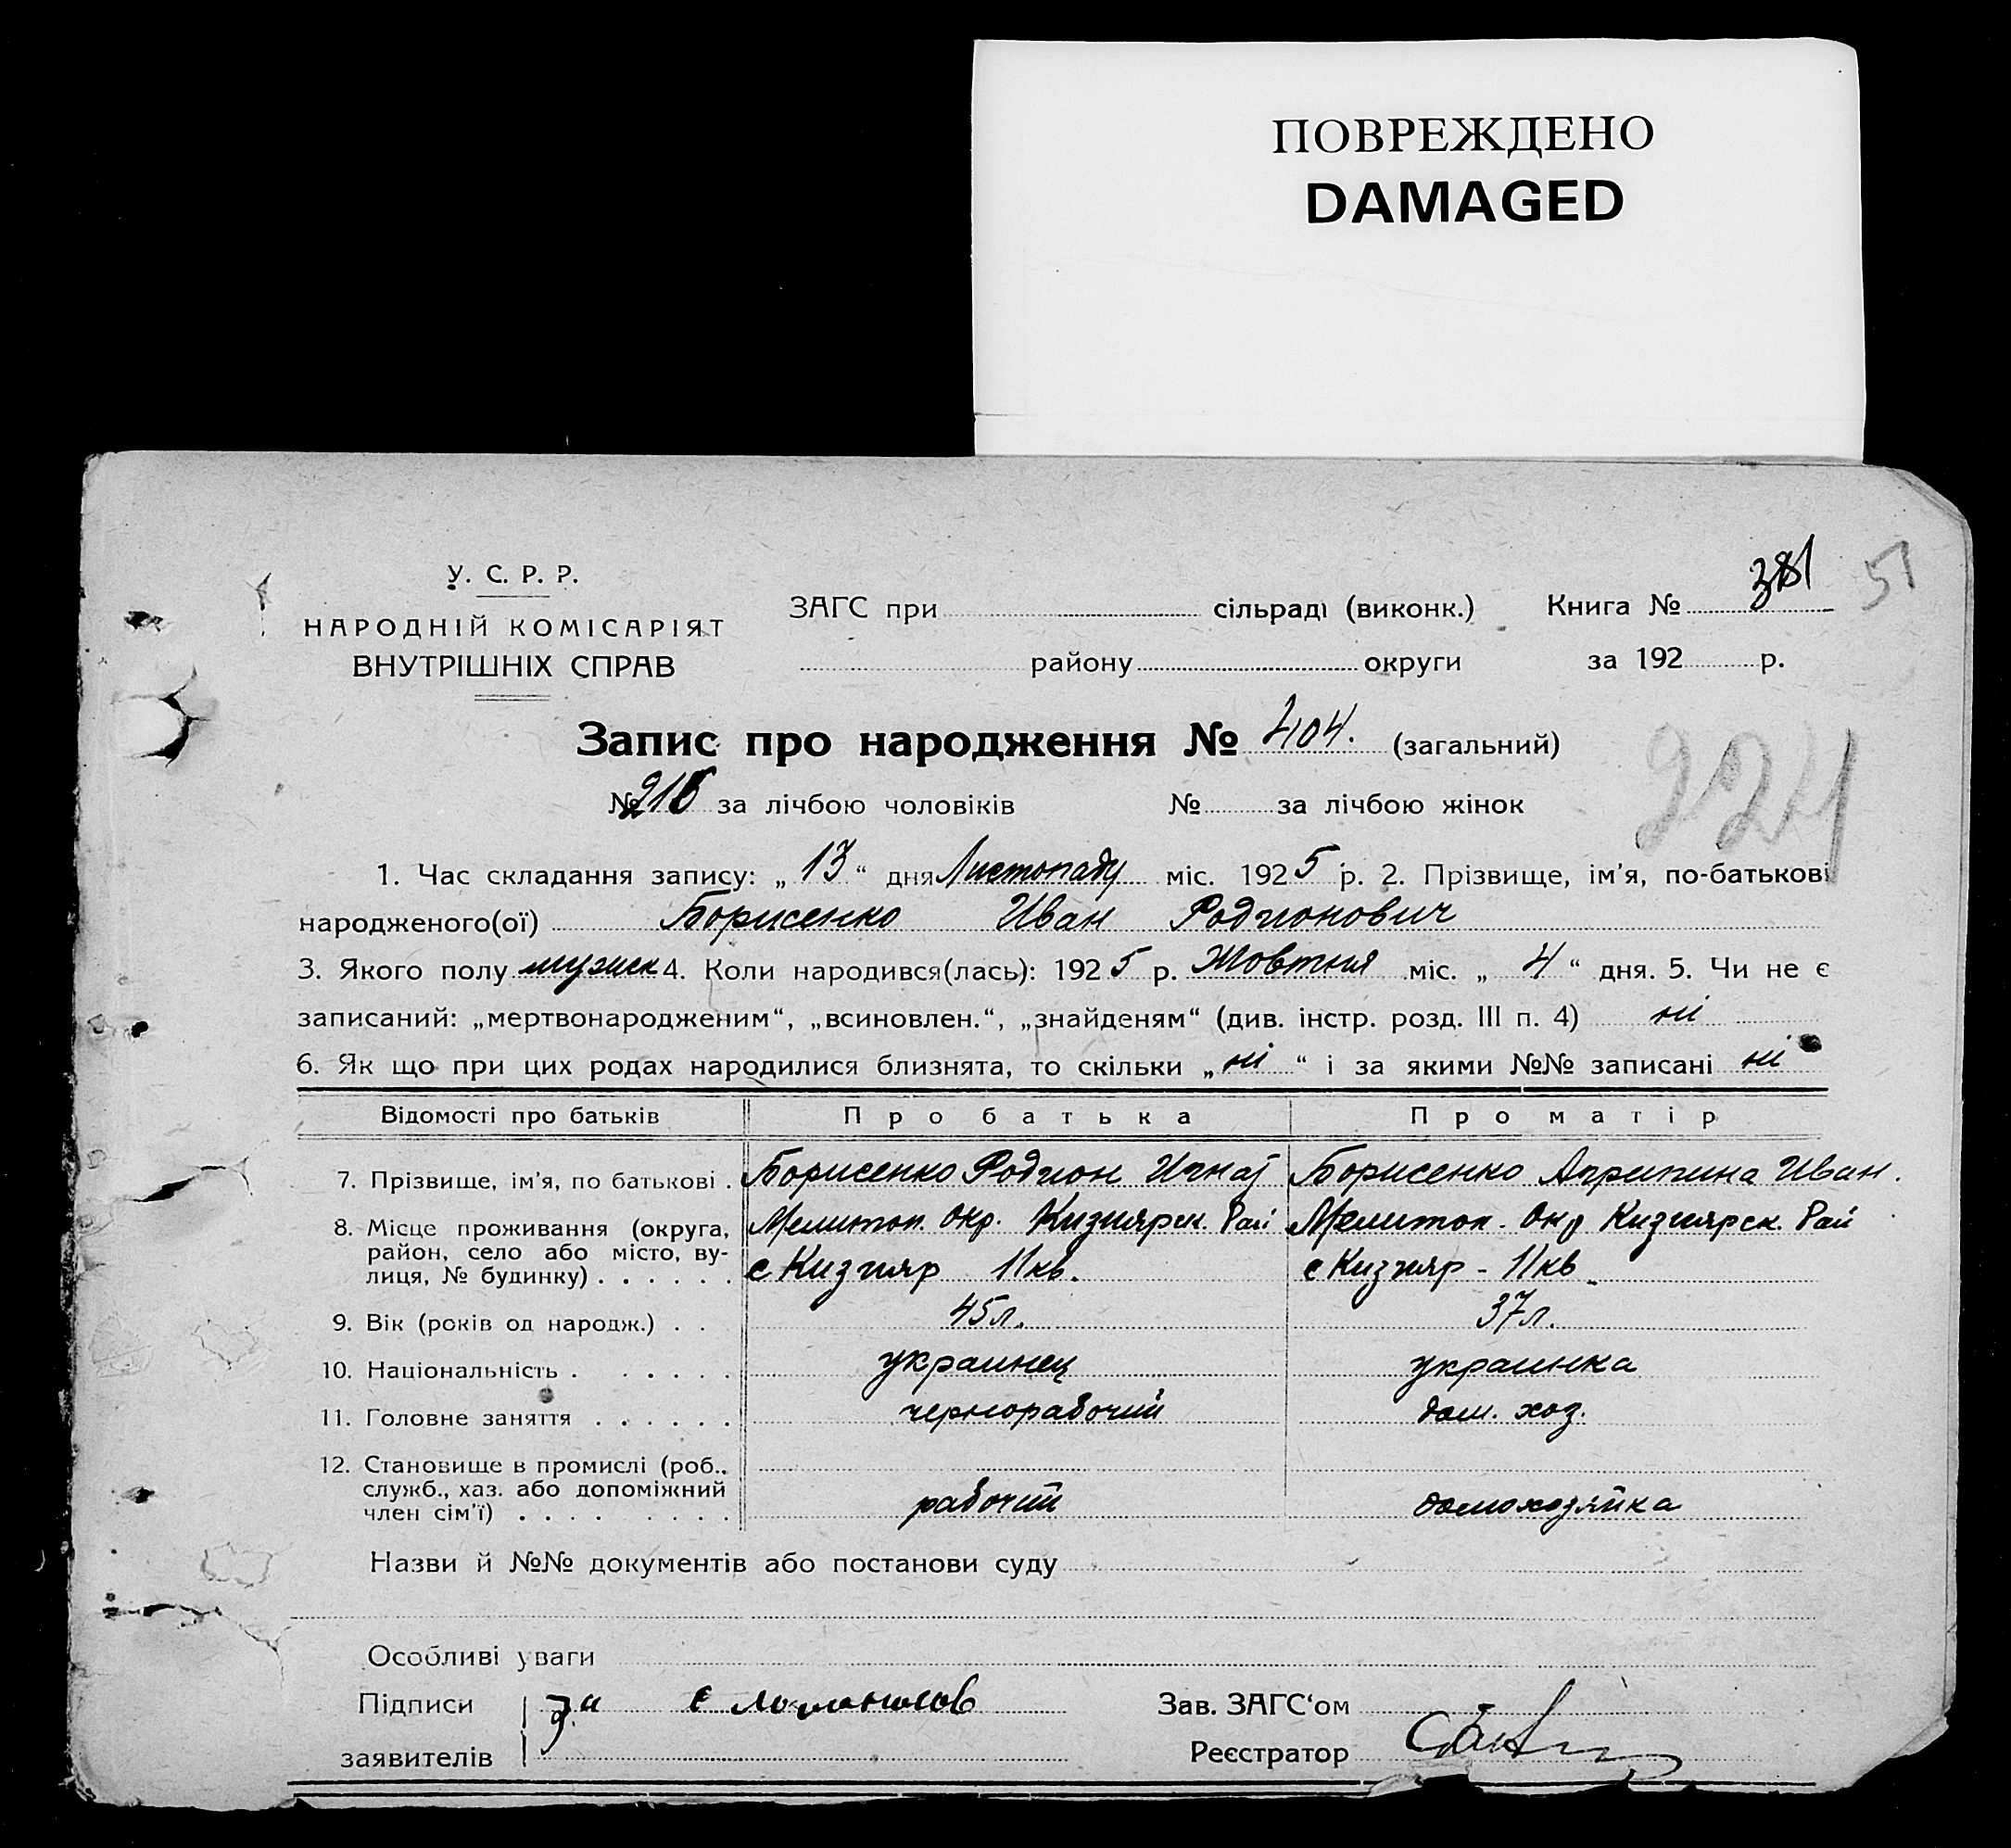 ПОВРЕЖДЕНО
DAMAGED
У. С. Р. Р.
НАРОДНІЙ КОМІСАРІЯТ
ВНУТРІШНІХ СПРАВ
ЗАГС при сільраді (виконк.) Книга № 381 51
району округи за 192 р.
Запис про народження № 404. (загальний)
221
№ 216 за лічбою чоловіків № за лічбою жінок
1. Час складання запису: „ 13 “ дня Листопаду міс. 1925 р. 2. Прізвище, ім'я, по-батькові
народженого(ої) Борисенко Иван Родионович
3. Якого полу мужск 4. Коли народився(лась): 1925 р. Жовтня міс. „ 4 “ дня. 5. Чи не є
записаний: „мертвонародженим“, „всиновлен.“, „знайденям“ (див. інстр. розд. III п. 4) ні
6. Як що при цих родах народилися близнята, то скільки „ ні “ і за якими №№ записані ні
Відомості про батьків Про батька Про матір
7. Прізвище, ім'я, по батькові . Борисенко Родион Игнат Борисенко Агрипина Иван.
8. Місце проживання (округа, Мелитоп. Окр. Кизиярск. Рай Мелитоп. Окр Кизиярск. Рай
район, село або місто, ву-
лиця, № будинку) . . . . . . с Кизияр 11кв. с Кизияр - 11кв.
9. Вік (років од народж.) . . 45л. 37л.
10. Національність . . . . . . украинец украинка
11. Головне заняття . . . . . . чернорабочий дом. хоз.
12. Становище в промислі (роб.,
служб., хаз. або допоміжний
член сім'ї) . . . . . . . . рабочий домохозяйка
Назви й №№ документів або постанови суду
Особливі уваги
Підписи За Зав. ЗАГС'ом
заявителів Реєстратор